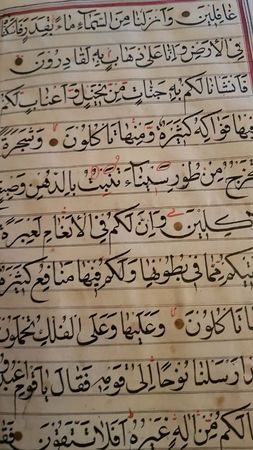 غَافِلِينَ ۝ وَأَنْزَلْنَا مِنَ السَّمَاءِ مَاءً بِقَدَرٍ فَأَسْكَنَّا
فِي الْأَرْضِ وَإِنَّا عَلَىٰ ذَهَابٍ بِهِ لَقَادِرُونَ ۝
فَأَنْشَأْنَا لَكُمْ بِهِ جَنَّاتٍ مِنْ نَخِيلٍ وَأَعْنَابٍ لَكُمْ
فِيهَا فَوَاكِهُ كَثِيرَةٌ وَمِنْهَا تَأْكُلُونَ ۝ وَشَجَرَةً
تَخْرُجُ مِنْ طُورِ سَيْنَاءَ تَنْبُتُ بِالدُّهْنِ وَصِبْغٍ
لِلْآكِلِينَ ۝ وَإِنَّ لَكُمْ فِي الْأَنْعَامِ لَعِبْرَةً
نُسْقِيكُمْ مِمَّا فِي بُطُونِهَا وَلَكُمْ فِيهَا مَنَافِعُ كَثِيرَةٌ
وَمِنْهَا تَأْكُلُونَ ۝ وَعَلَيْهَا وَعَلَى الْفُلْكِ تُحْمَلُونَ
وَلَقَدْ أَرْسَلْنَا نُوحًا إِلَىٰ قَوْمِهِ فَقَالَ يَا قَوْمِ اعْبُدُوا
مَا لَكُمْ مِنْ إِلَٰهٍ غَيْرُهُ أَفَلَا تَتَّقُونَ ۝